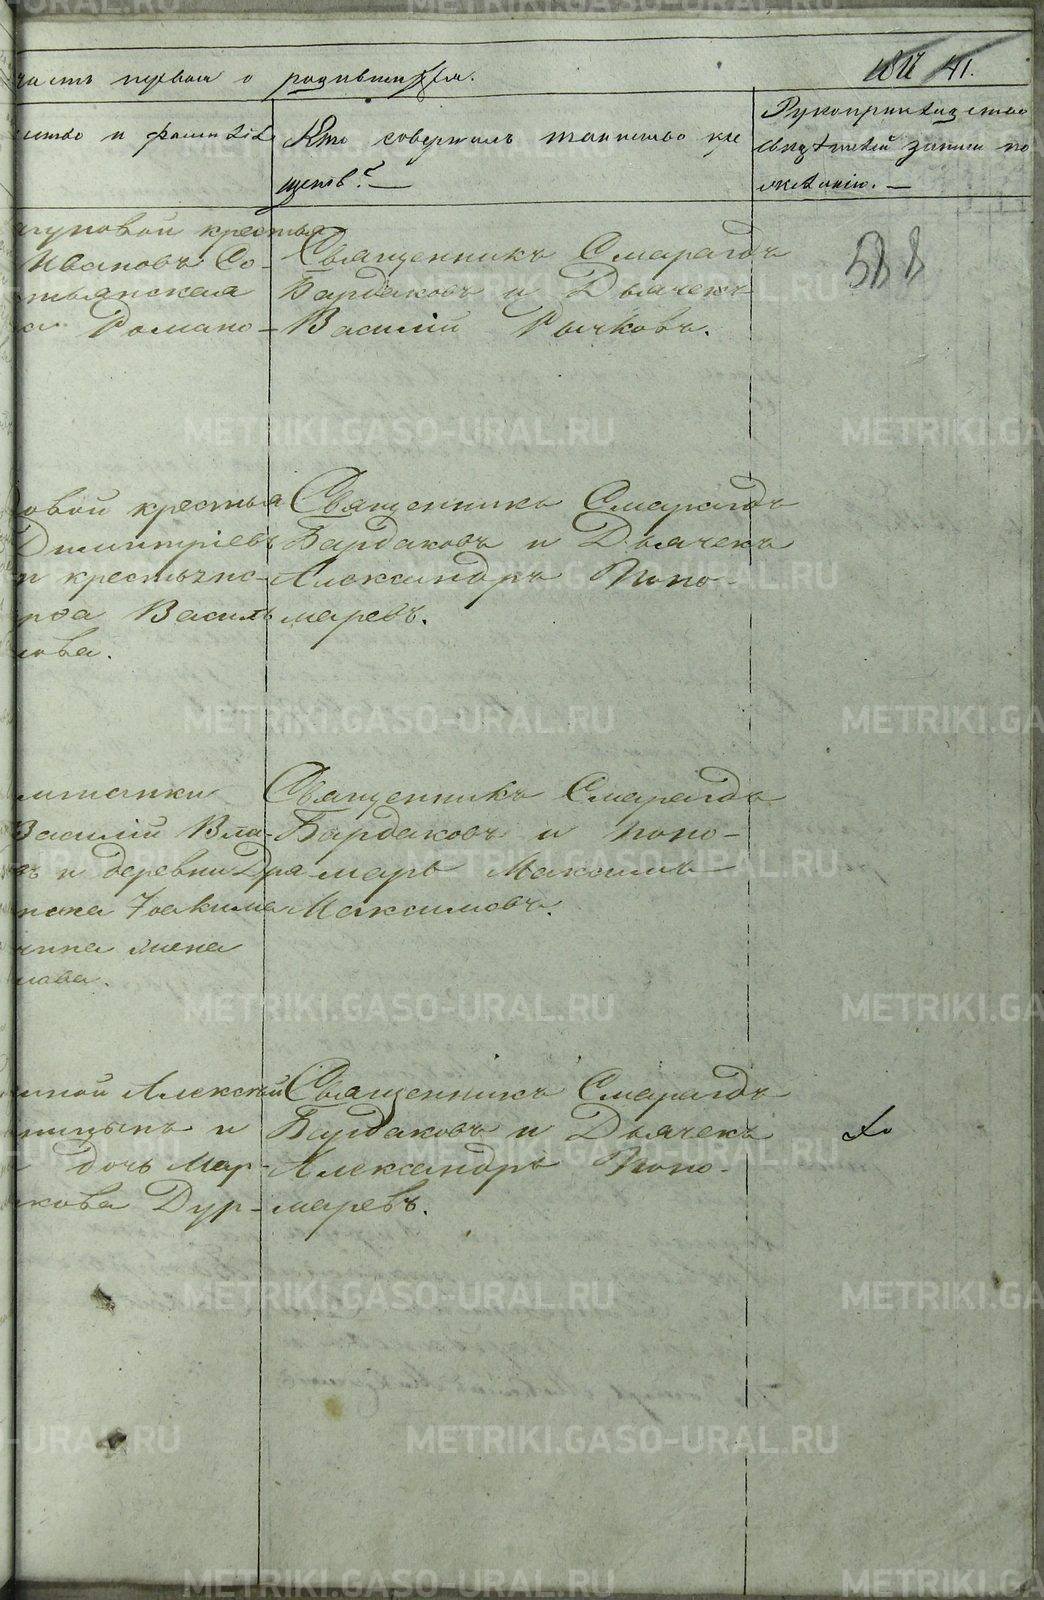 часть первая о родившихся.
41.
ство и фамилiя
Кто совершалъ таинство кре
щенiя? —
Рукоприкладство
свидѣтелей записи по
желанiю. —
588
гуновой крестья
Ивановъ Со-
тьянская
Романо-
Священникъ Смарагдъ
Бардаковъ и Дьячекъ
Василiй Рычковъ.
овой крестья
Димитрiевъ
и крестьянс-
Василь
лова.
Священникъ Смарагдъ
Бардаковъ и Дьячекъ
Александръ Поно-
маревъ.
Василiй Вла-
въ и деревни Дря
Iоакима
жена
лова.
Священникъ Смарагдъ
Бардаковъ и Поно-
марь Максимъ
Максимовъ.
Алексѣй
ницынъ и
дочь Мар-
кова Дур-
Священникъ Смарагдъ
Бардаковъ и Дьячекъ
Александръ Поно-
маревъ.
METRIKI.GASO-URAL.RU